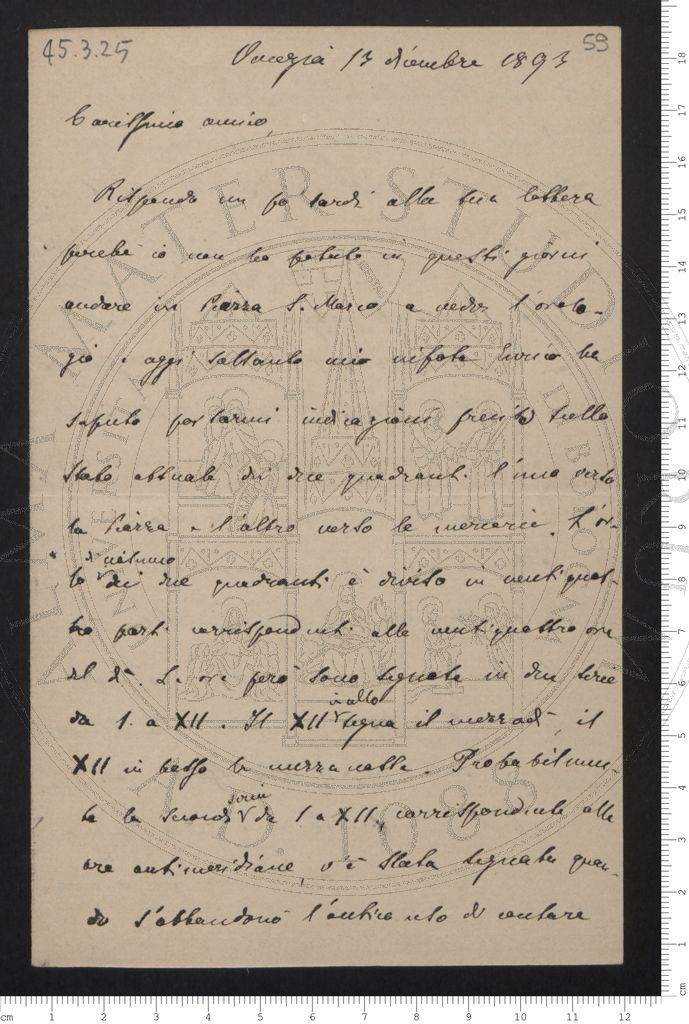 45.3.25
59
Venezia 13 dicembre 1893
Carissimo amico,
Rispondo un po' tardi alla tua lettera
perché io non ho potuto in questi giorni
andare in Piazza S. Marco a veder l'orolo-
gio e oggi soltanto mio nipote Enrico ha
saputo portarmi indicazioni precise sullo
stato attuale dei due quadranti l'uno verso
la Piazza e l'altro verso le mercerie. L'or-
lo di nessuno dei due quadranti è diviso in ventiquat-
tro parti corrispondenti alle ventiquattro ore
del dì. Le ore però sono segnate in due serie
da 1. a XII. Il XII in alto segna il mezzodì, il
XII in basso la mezzanotte. Probabilmen-
te la seconda serie da 1 a XII, corrispondente alle
ore antimeridiane, v'è stata segnata quan-
do s'abbandonò l'antico uso di contare
ALMA MATER STUDIORUM
A.D. 1088
cm 1 2 3 4 5 6 7 8 9 10 11 12
cm 1 2 3 4 5 6 7 8 9 10 11 12 13 14 15 16 17 18